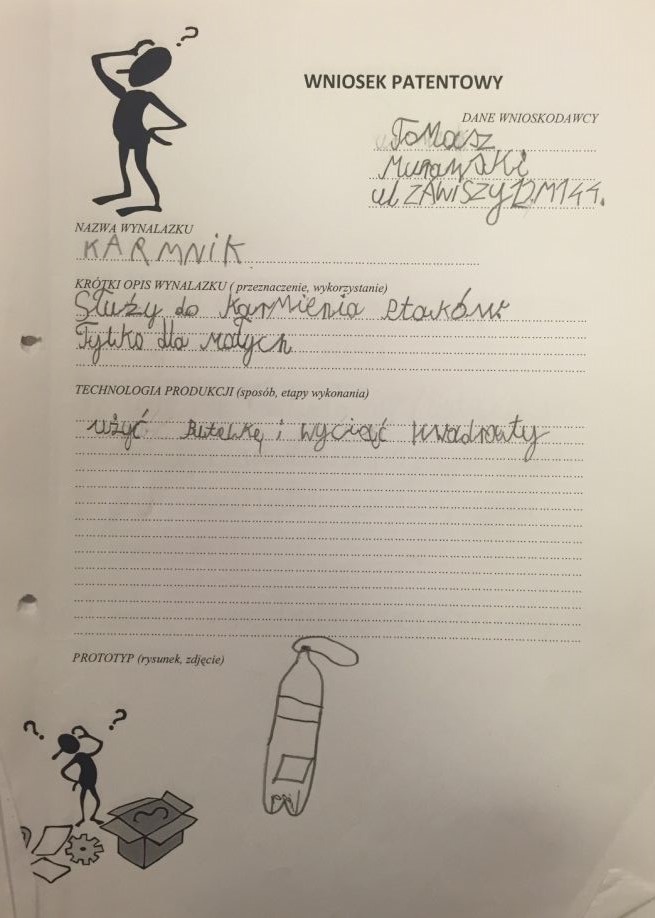 ?
WNIOSEK PATENTOWY
DANE WNIOSKODAWCY
Tomasz
Murawski
ul ZAWISZY 12 M144.
NAZWA WYNALAZKU
KARMNIK
KRÓTKI OPIS WYNALAZKU ( przeznaczenie, wykorzystanie)
Służy do karmienia ptaków
Tylko dla małych
TECHNOLOGIA PRODUKCJI (sposób, etapy wykonania)
użyć butelkę i wyciąć kwadraty
PROTOTYP (rysunek, zdjęcie)
? ?